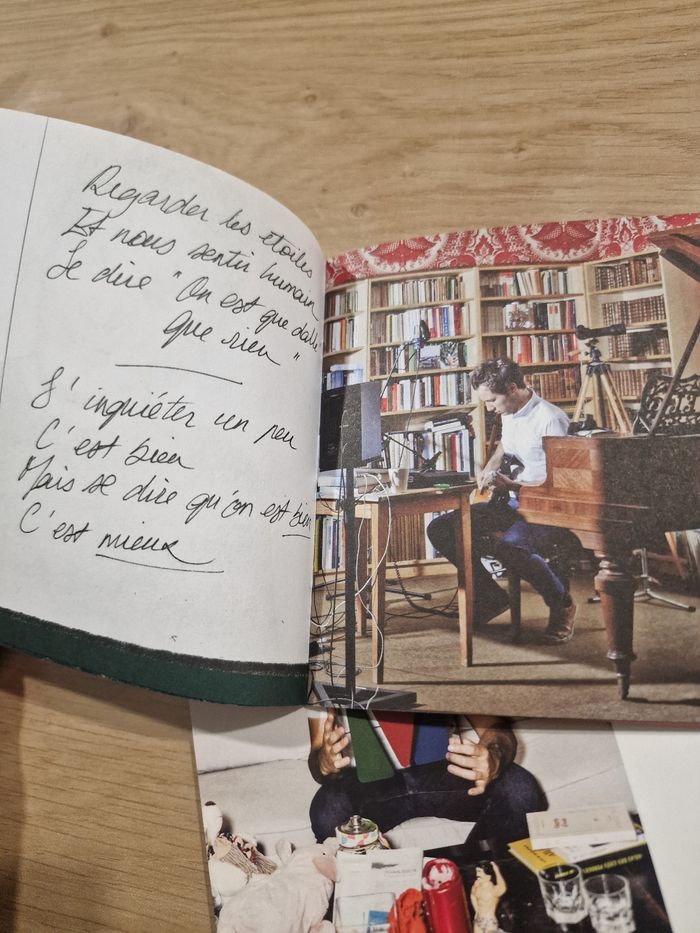 Regarder les étoiles
Et nous sentir humain
Se dire "On est que dalle
que rien"
S'inquiéter un peu
C'est bien
Mais se dire qu'on est bien
C'est mieux